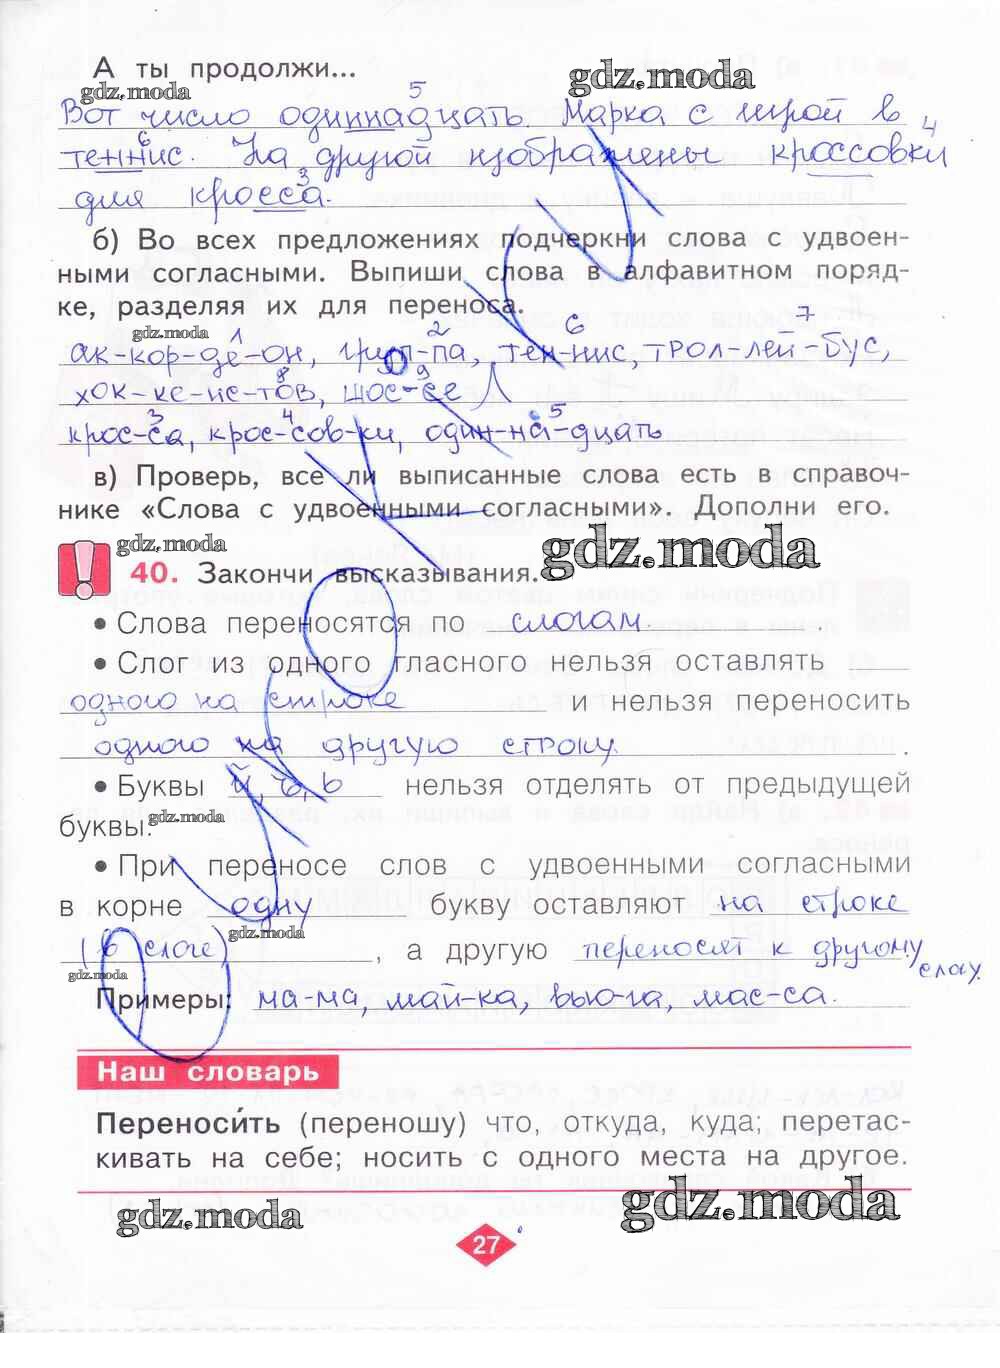 А ты продолжи...
gdz.moda
gdz.moda
5
Вот число одиннадцать. Марка с игрой в
6 4
теннис. На другой изображены кроссовки
3
для кросса.
б) Во всех предложениях подчеркни слова с удвоен-
ными согласными. Выпиши слова в алфавитном поряд-
ке, разделяя их для переноса.
gdz.moda
1 2 6 7
ак-кор-де-он, груп-па, тен-нис, трол-лей-бус,
8 9
хок-ке-ис-тов, шос-се
3 4 5
крос-са, крос-сов-ки, один-на-дцать
в) Проверь, все ли выписанные слова есть в справоч-
нике «Слова с удвоенными согласными». Дополни его.
gdz.moda
gdz.moda
40. Закончи высказывания.
• Слова переносятся по слогам.
• Слог из одного гласного нельзя оставлять
одного на строке и нельзя переносить
одного на другую строку.
• Буквы й, ъ, ь нельзя отделять от предыдущей
буквы.
gdz.moda
• При переносе слов с удвоенными согласными
в корне одну букву оставляют на строке
gdz.moda
(в слоге), а другую переносят к другому
слогу.
gdz.moda
Примеры: ма-ма, май-ка, вью-га, мас-са.
Наш словарь
Переноси́ть (переношу) что, откуда, куда; перетас-
кивать на себе; носить с одного места на другое.
gdz.moda
gdz.moda
27